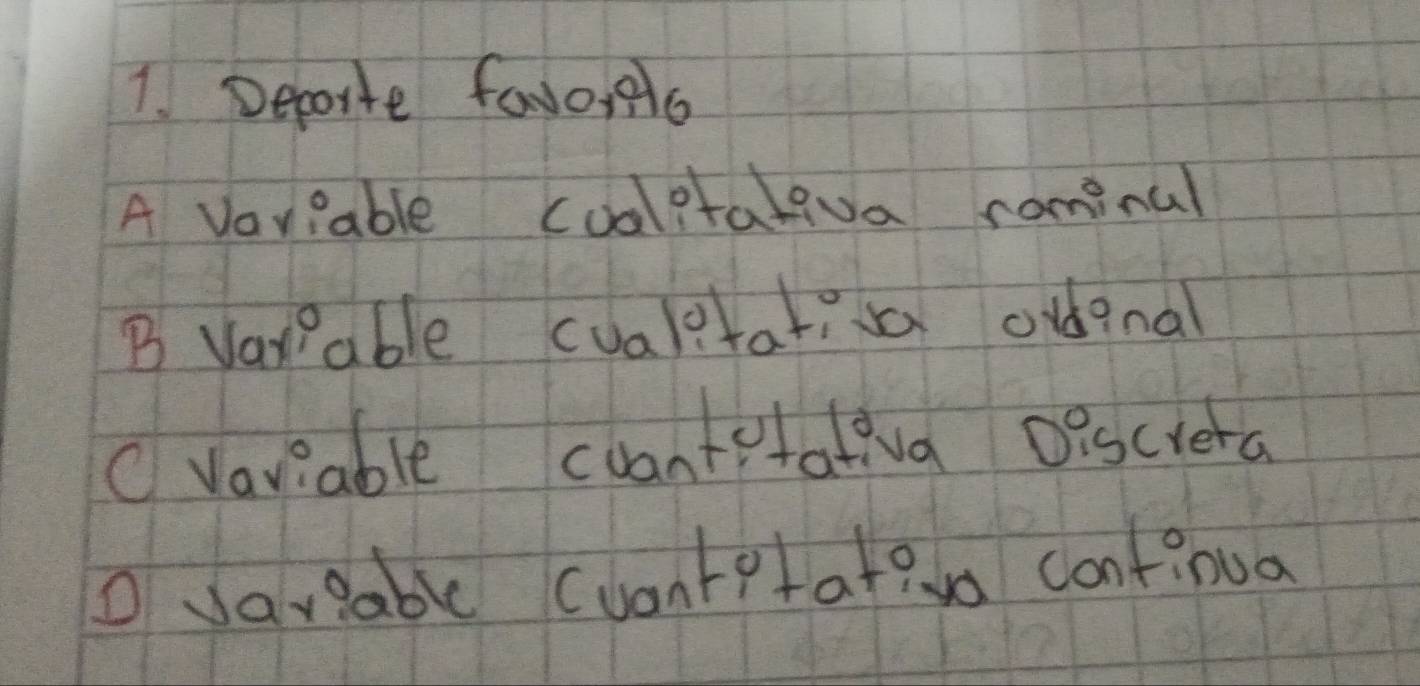 1. Deporte favorito
A Variable cualitativa nominal
B Variable cualitativa ordinal
C Variable cuantitativa Discreta
D variable cuantitativa continua